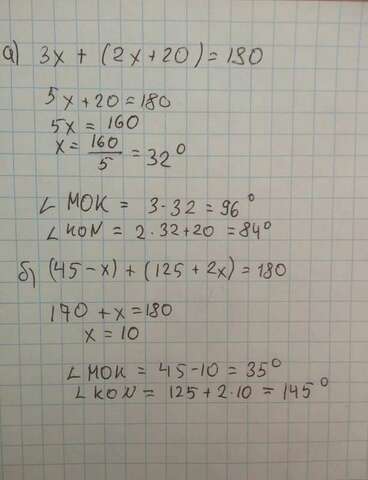 а) 3x + (2x+20) = 180
5x+20 = 180
5x = 160
x = 160/5 = 32°
∠ MOK = 3·32 = 96°
∠ KON = 2·32+20 = 84°
б) (45-x) + (125+2x) = 180
170 + x = 180
x = 10
∠ MOK = 45-10 = 35°
∠ KON = 125+2·10 = 145°